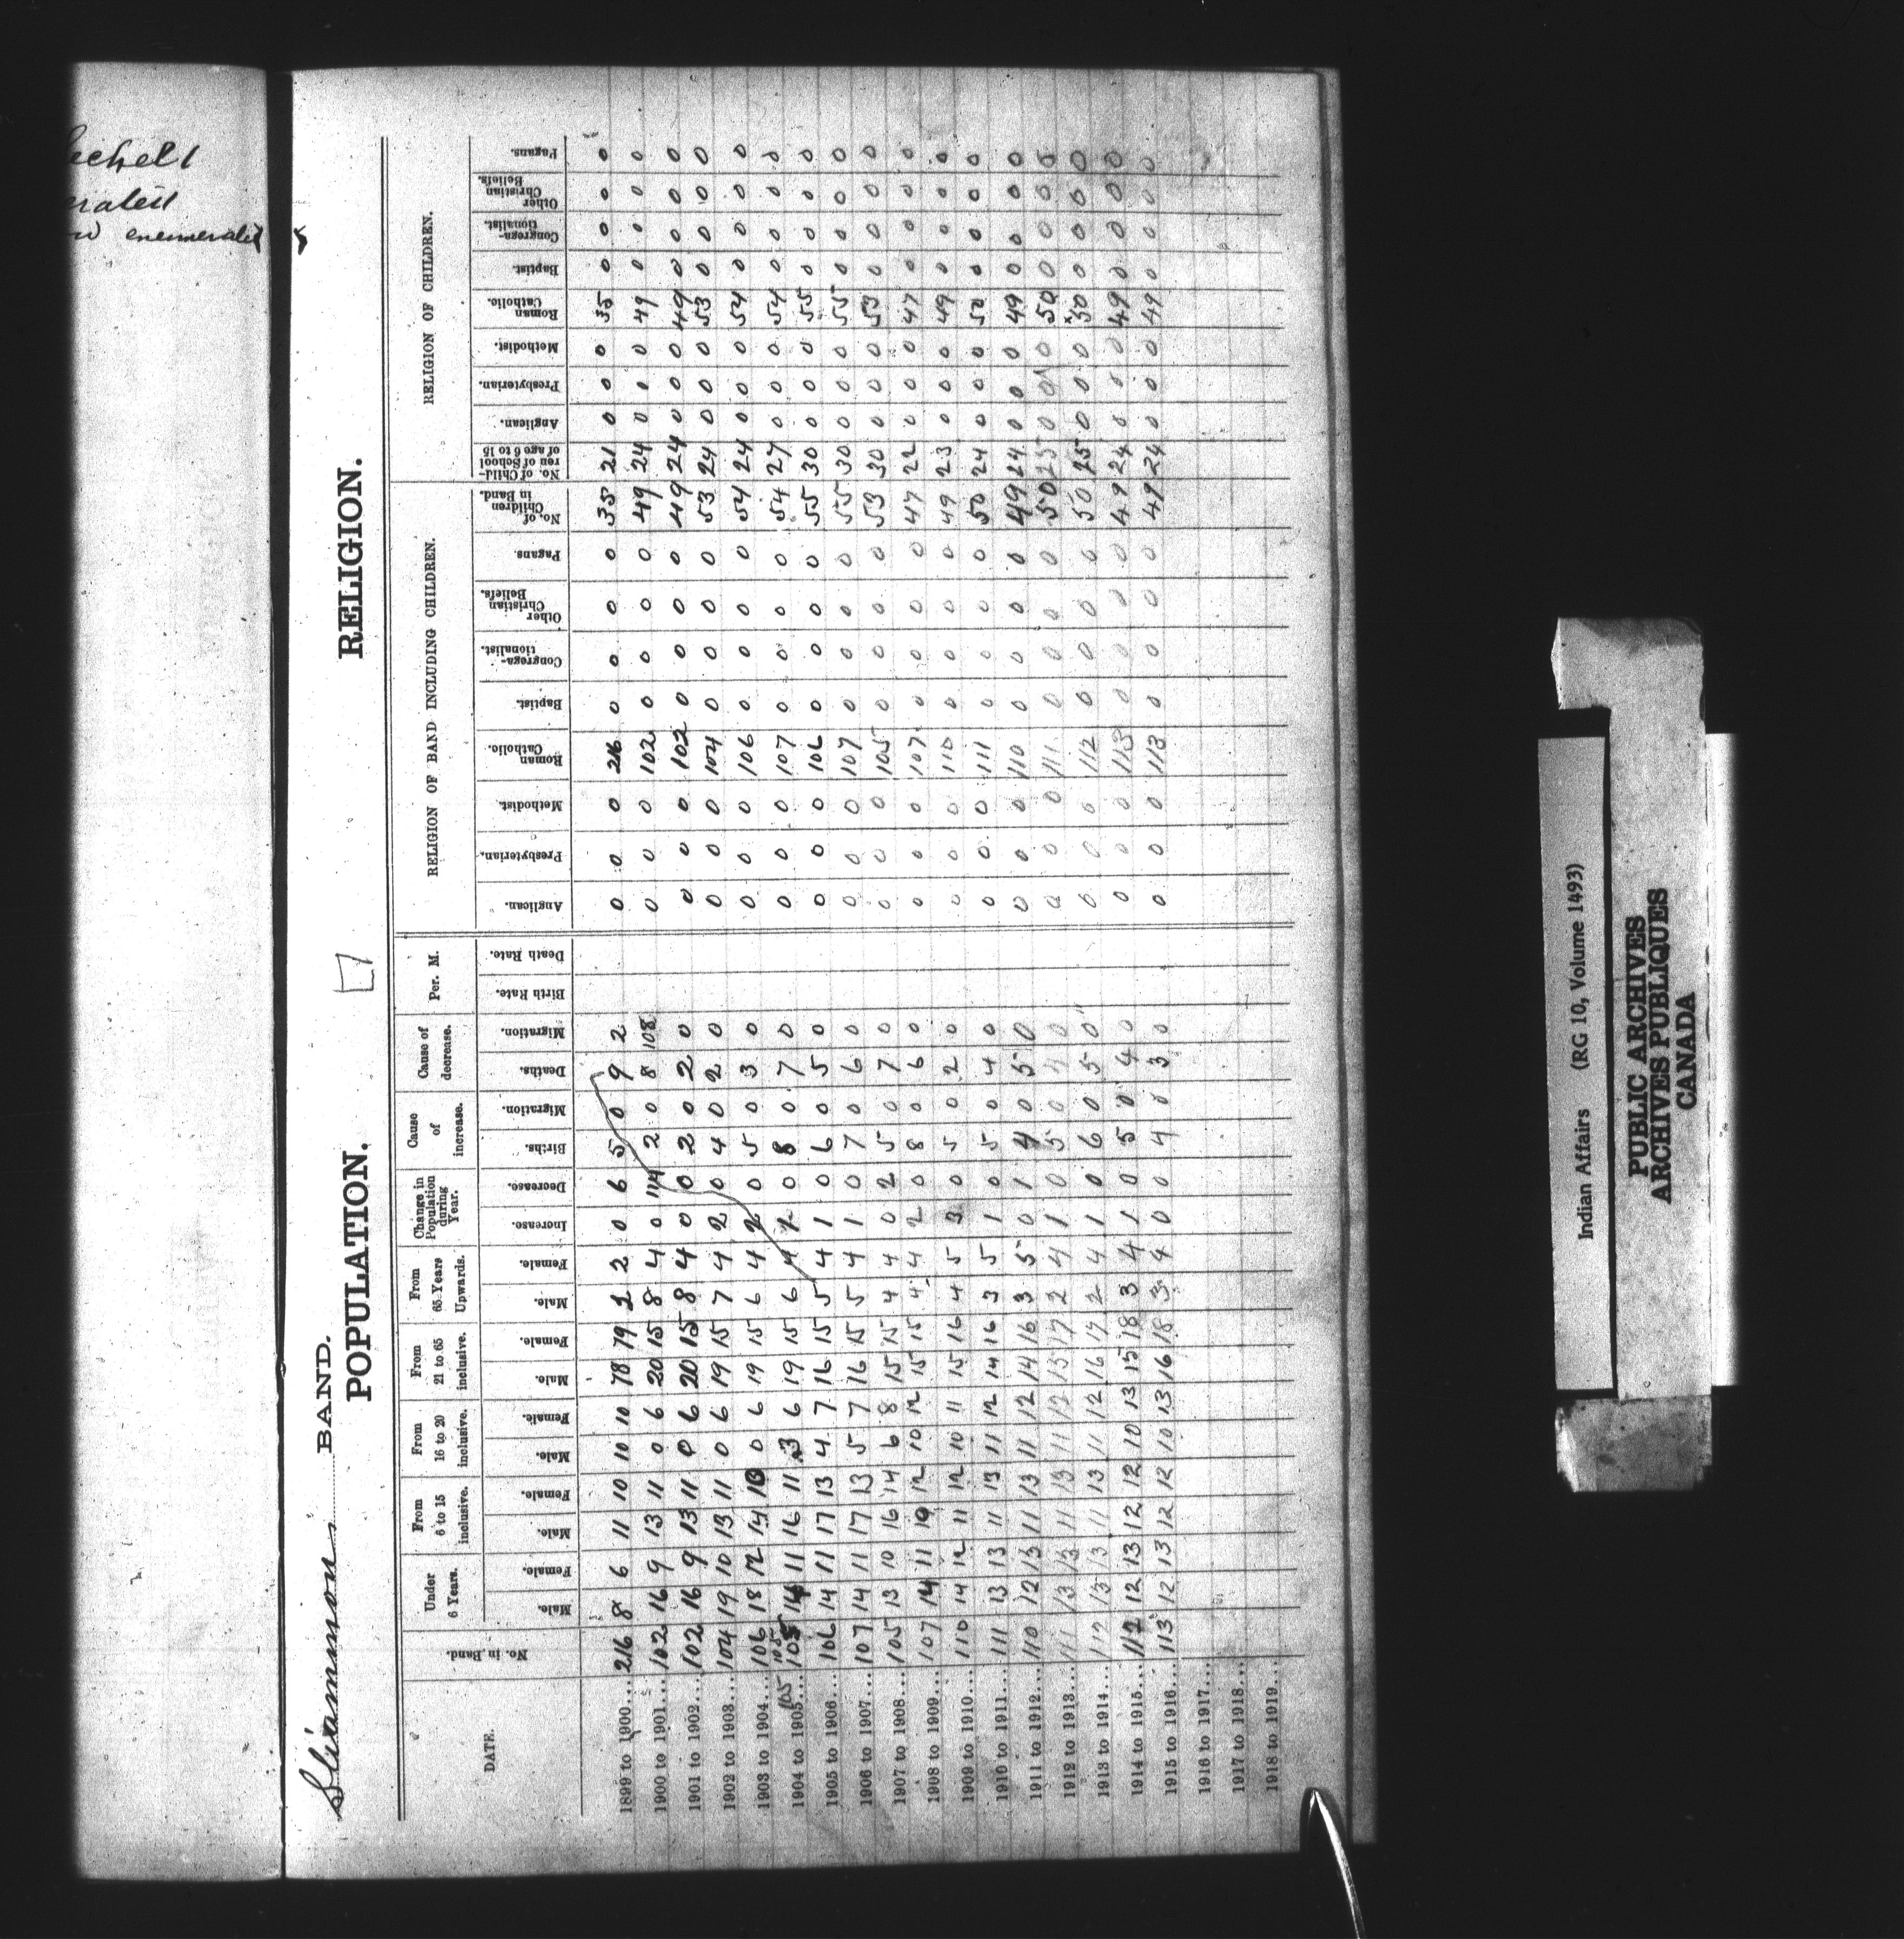 echelt
erated
enumerated
Sliammon BAND.
POPULATION.
RELIGION.
DATE.
No. in Band.
Under 6 Years.
From 6 to 15 inclusive.
From 16 to 20 inclusive.
From 21 to 65 inclusive.
From 65 Years Upwards.
Change in Population during Year.
Cause of increase.
Cause of decrease.
Per. M.
RELIGION OF BAND INCLUDING CHILDREN.
RELIGION OF CHILDREN.
Male. Female. Male. Female. Male. Female. Male. Female. Male. Female. Increase. Decrease. Births. Migration. Deaths. Migration. Birth Rate. Death Rate. Anglican. Presbyterian. Methodist. Roman Catholic. Baptist. Congregationalist. Other Christian Beliefs. Pagans. No. of Children in Band. No. of Children of School of age 6 to 15 Anglican. Presbyterian. Methodist. Roman Catholic. Baptist. Congregationalist. Other Christian Beliefs. Pagans.
1899 to 1900... 216 8 6 11 10 10 10 78 79 2 2 0 6 5 0 9 2 0 0 0 216 0 0 0 0 35 21 0 0 0 35 0 0 0 0
1900 to 1901... 102 16 9 13 11 0 6 20 15 8 4 0 114 2 0 8 108 0 0 0 102 0 0 0 0 49 24 0 0 0 49 0 0 0 0
1901 to 1902... 102 16 9 13 11 0 6 20 15 8 4 0 0 2 0 2 0 0 0 0 102 0 0 0 0 49 24 0 0 0 49 0 0 0 0
1902 to 1903... 104 19 10 13 11 0 6 19 15 7 4 2 0 4 0 2 0 0 0 0 104 0 0 0 0 53 24 0 0 0 53 0 0 0 0
1903 to 1904... 106 18 12 14 10 0 6 19 15 6 4 2 0 5 0 3 0 0 0 0 106 0 0 0 0 54 24 0 0 0 54 0 0 0 0
1904 to 1905... 105 105 105 14 11 16 11 3 6 19 15 6 4 1 0 8 0 7 0 0 0 0 107 0 0 0 0 54 27 0 0 0 54 0 0 0 0
1905 to 1906... 106 14 11 17 13 4 7 16 15 5 4 1 0 6 0 5 0 0 0 0 106 0 0 0 0 55 30 0 0 0 55 0 0 0 0
1906 to 1907... 107 14 11 17 13 5 7 16 15 5 4 1 0 7 0 6 0 0 0 0 107 0 0 0 0 55 30 0 0 0 55 0 0 0 0
1907 to 1908... 105 13 10 16 14 6 8 15 15 4 4 0 2 5 0 7 0 0 0 0 105 0 0 0 0 53 30 0 0 0 53 0 0 0 0
1908 to 1909... 107 14 11 10 12 10 12 15 15 4 4 2 0 8 0 6 0 0 0 0 107 0 0 0 0 47 22 0 0 0 47 0 0 0 0
1909 to 1910... 110 14 12 11 12 10 11 15 16 4 5 3 0 5 0 2 0 0 0 0 110 0 0 0 0 49 23 0 0 0 49 0 0 0 0
1910 to 1911... 111 13 13 11 13 11 12 14 16 3 5 1 0 5 0 4 0 0 0 0 111 0 0 0 0 50 24 0 0 0 50 0 0 0 0
1911 to 1912... 110 12 13 11 13 11 12 14 16 3 5 0 1 4 0 5 0 0 0 0 110 0 0 0 0 49 24 0 0 0 49 0 0 0 0
1912 to 1913... 111 13 13 11 13 11 12 15 17 2 4 1 0 5 0 4 0 0 0 0 111 0 0 0 0 50 25 0 0 0 50 0 0 0 0
1913 to 1914... 112 13 13 11 13 11 12 16 17 2 4 1 0 6 0 5 0 0 0 0 112 0 0 0 0 50 25 0 0 0 50 0 0 0 0
1914 to 1915... 112 12 13 12 12 10 13 15 18 3 4 1 0 5 0 4 0 0 0 0 113 0 0 0 0 49 24 0 0 0 49 0 0 0 0
1915 to 1916... 113 12 13 12 12 10 13 16 18 3 4 0 0 4 0 3 0 0 0 0 113 0 0 0 0 49 24 0 0 0 49 0 0 0 0
1916 to 1917...
1917 to 1918...
1918 to 1919...
Indian Affairs (RG 10, Volume 1493)
PUBLIC ARCHIVES
ARCHIVES PUBLIQUES
CANADA